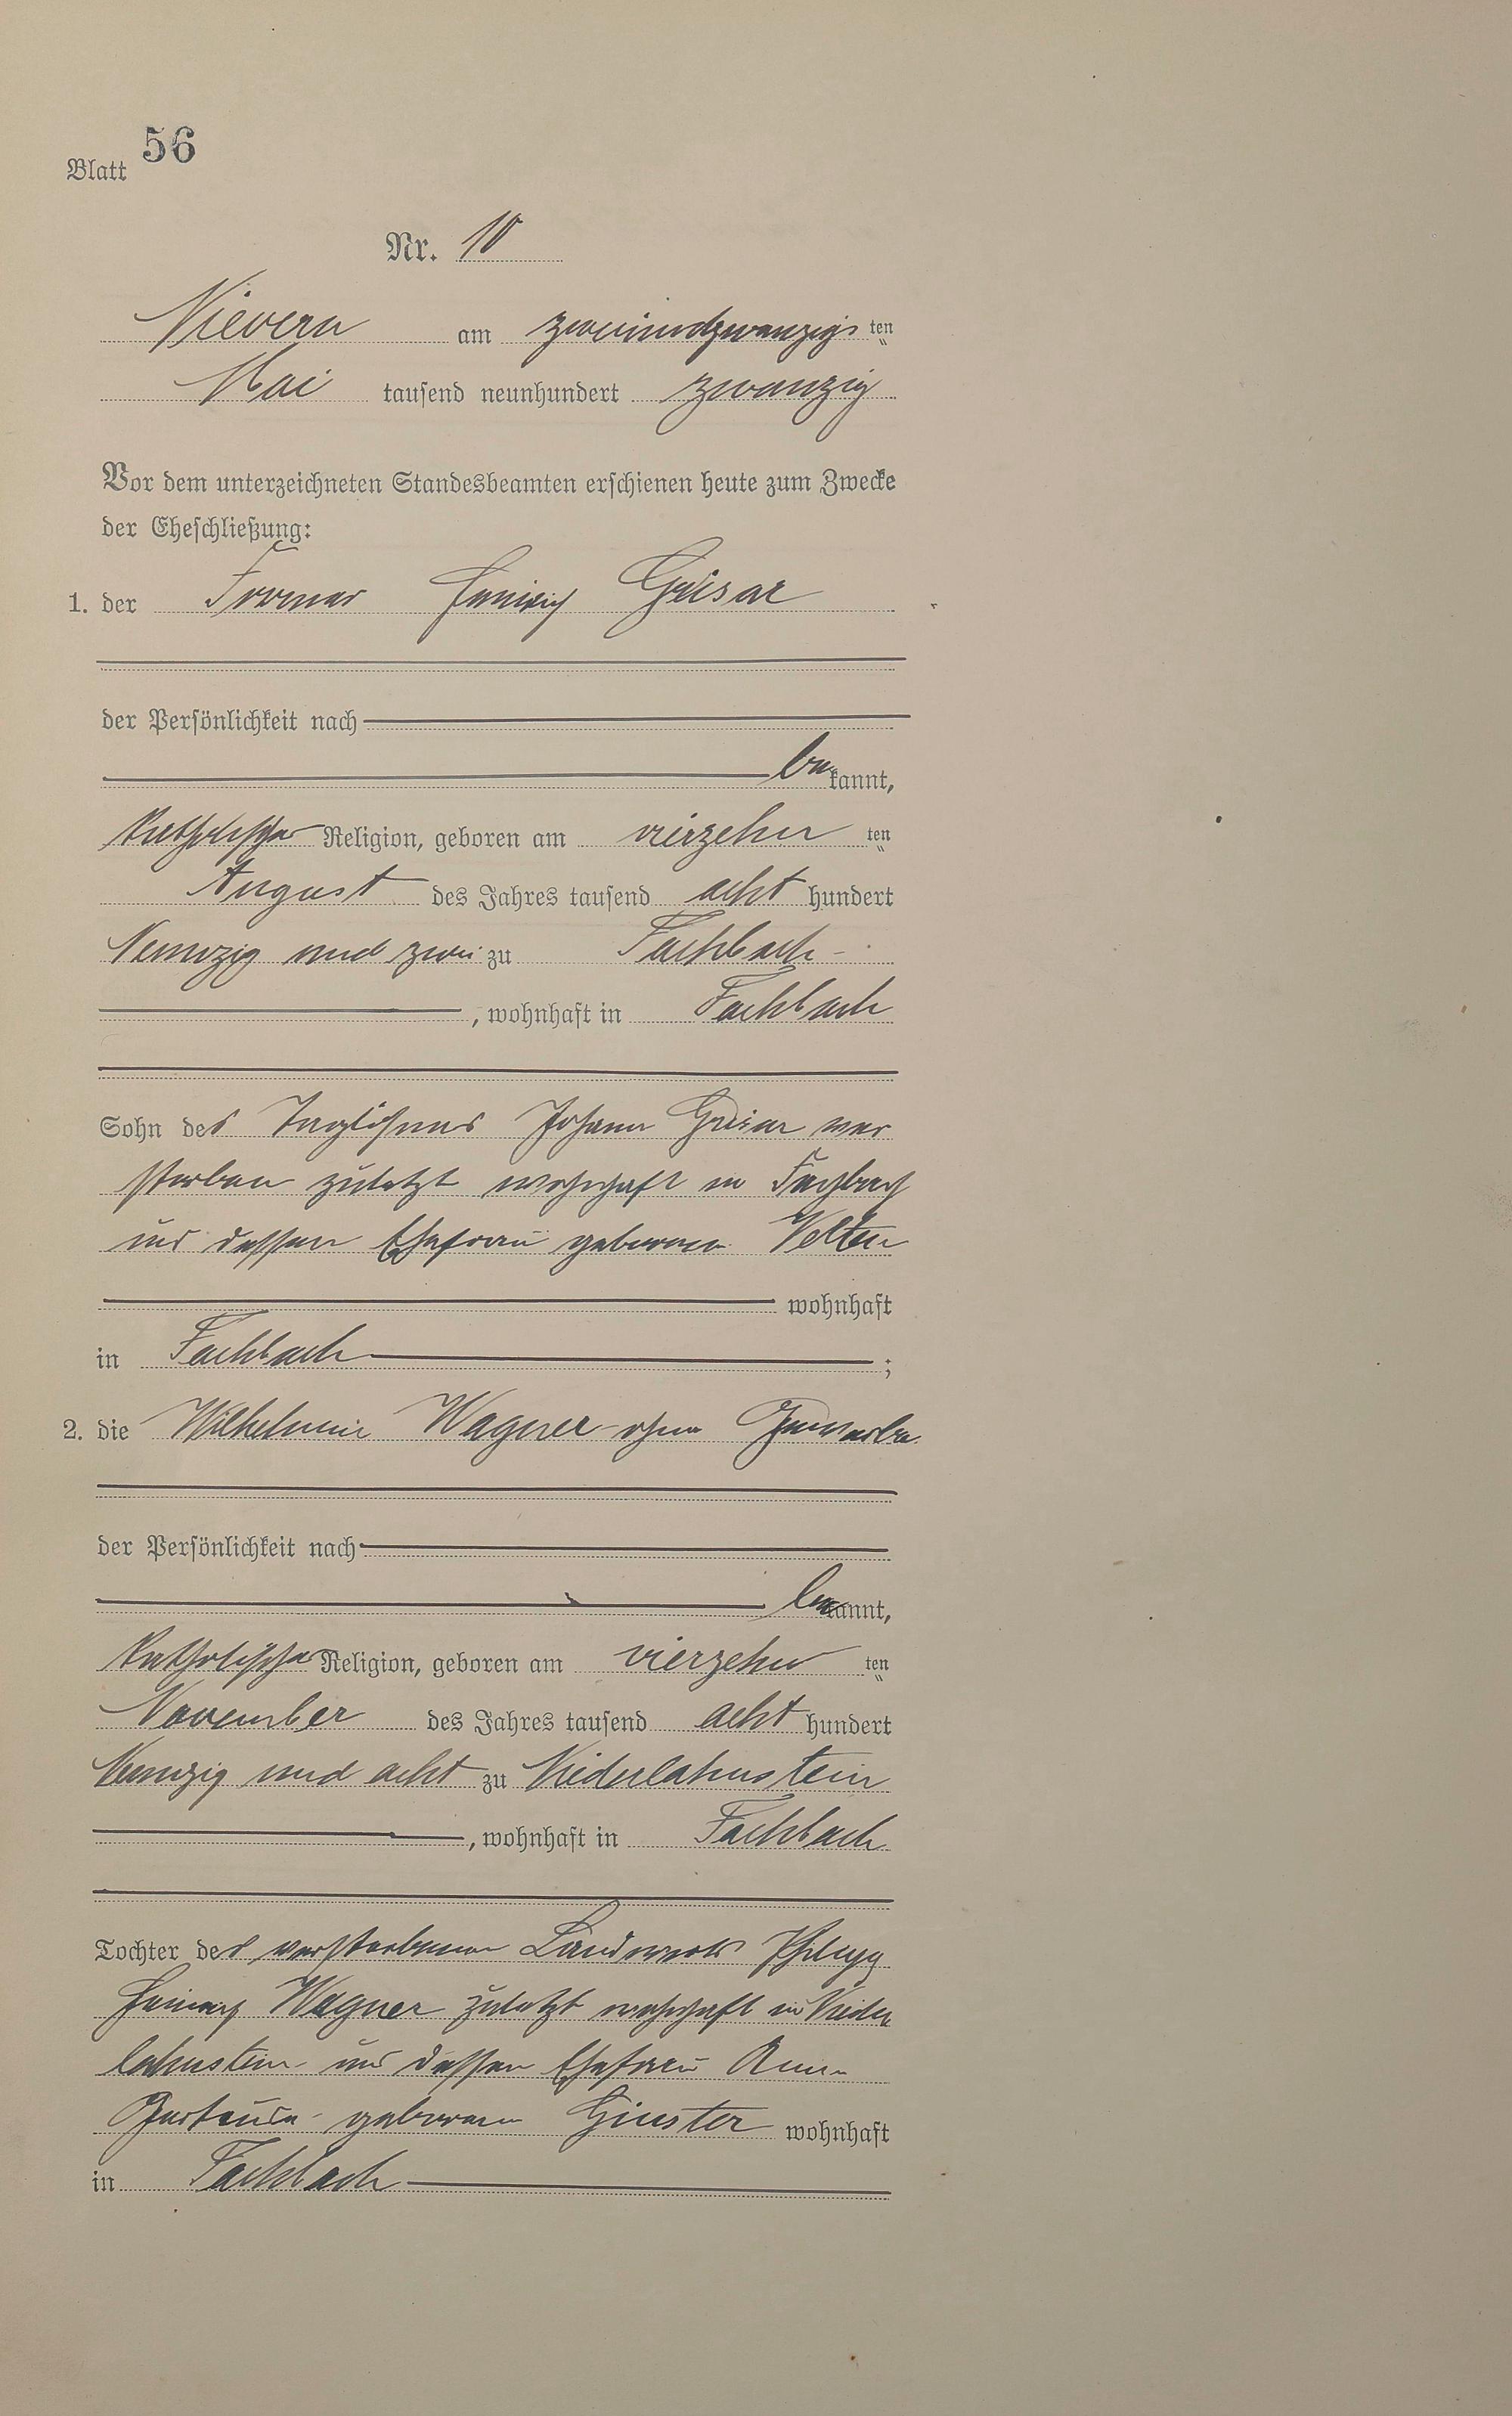 Blatt 56
Nr. 10
Nievern am zweiundzwanzigs ten
Mai tausend neunhundert zwanzig
Vor dem unterzeichneten Standesbeamten erschienen heute zum Zwecke
der Eheschließung:
1. der Former Heinrich Grisar
der Persönlichkeit nach
be kannt,
katholischer Religion, geboren am vierzehn ten
August des Jahres tausend acht hundert
Neunzig und zwei zu Fachbach
, wohnhaft in Fachbach
Sohn des Taglöhners Johann Grisar ver
storben zuletzt wohnhaft in Fachbach
und dessen Ehefrau geborenen Velten
wohnhaft
in Fachbach ;
2. die Wilhelmine Wagner ohne Gewerbe
der Persönlichkeit nach
be kannt,
katholischer Religion, geboren am vierzehn ten
November des Jahres tausend acht hundert
Neunzig und acht zu Niederlahnstein
, wohnhaft in Fachbach
Tochter des verstorbenen Landwirts Philipp
Heinrich Wagner zuletzt wohnhaft in Nieder
lahnstein und dessen Ehefrau Anna
geborenen Ginster wohnhaft
in Fachbach